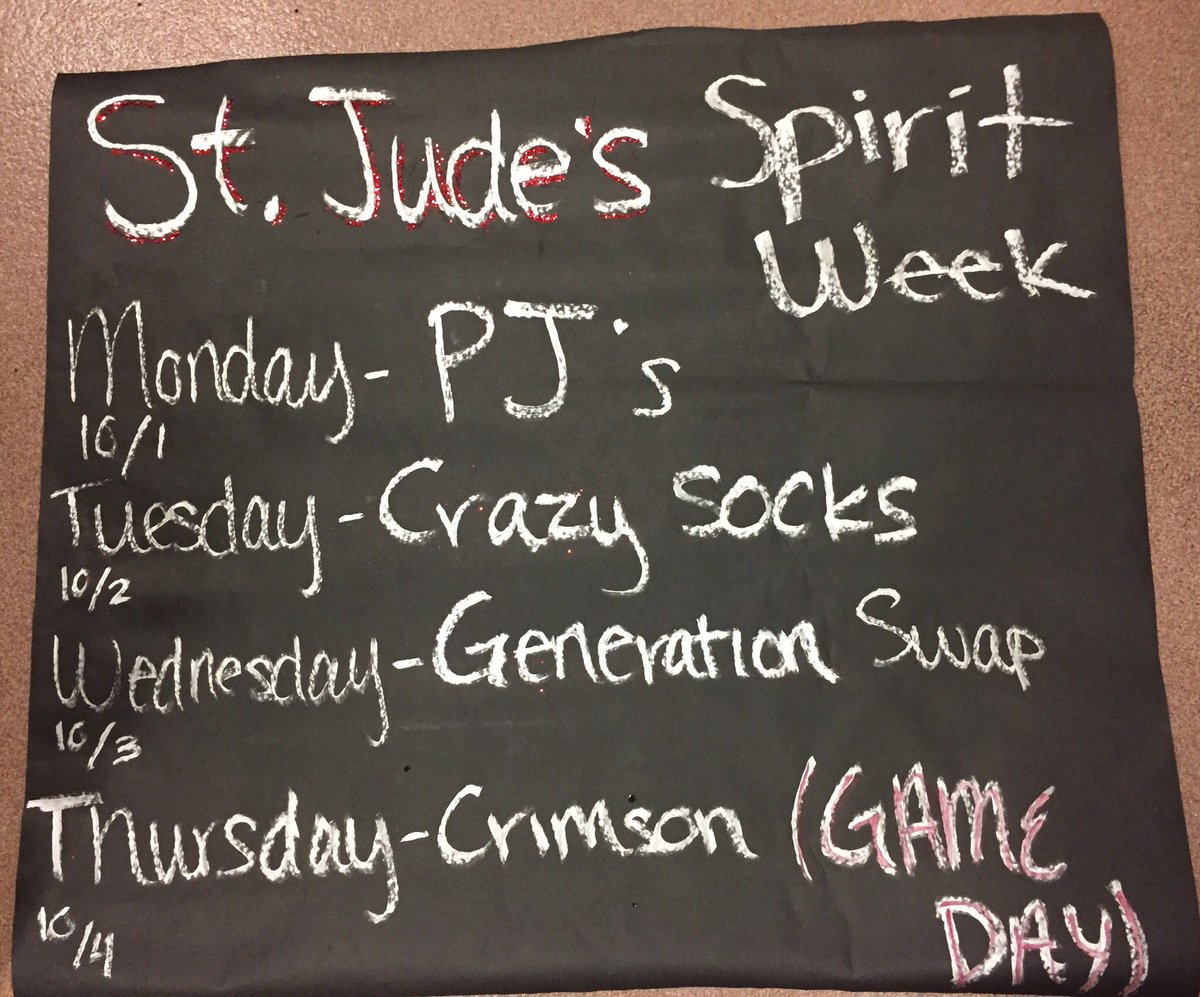 St. Jude's Spirit
Week
Monday - PJ's
10/1
Tuesday - Crazy socks
10/2
Wednesday - Generation Swap
10/3
Thursday - Crimson (GAME
DAY)
10/4